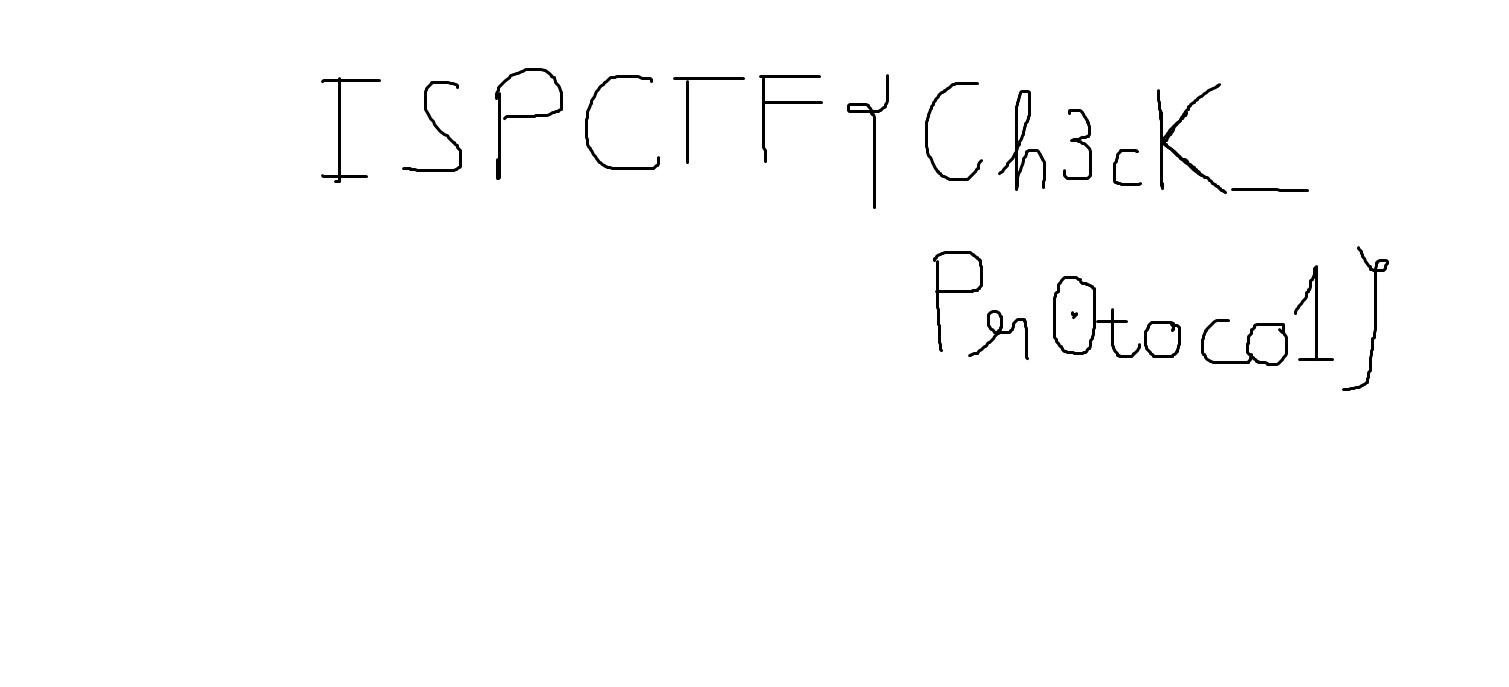 ISPCTF{Ch3cK_
Pr0toco1}